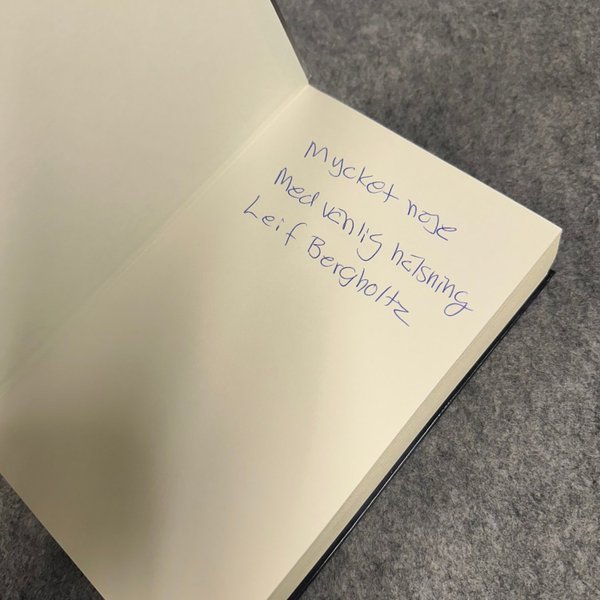 Mycket nöje
Med vänlig hälsning
Leif Bergholtz